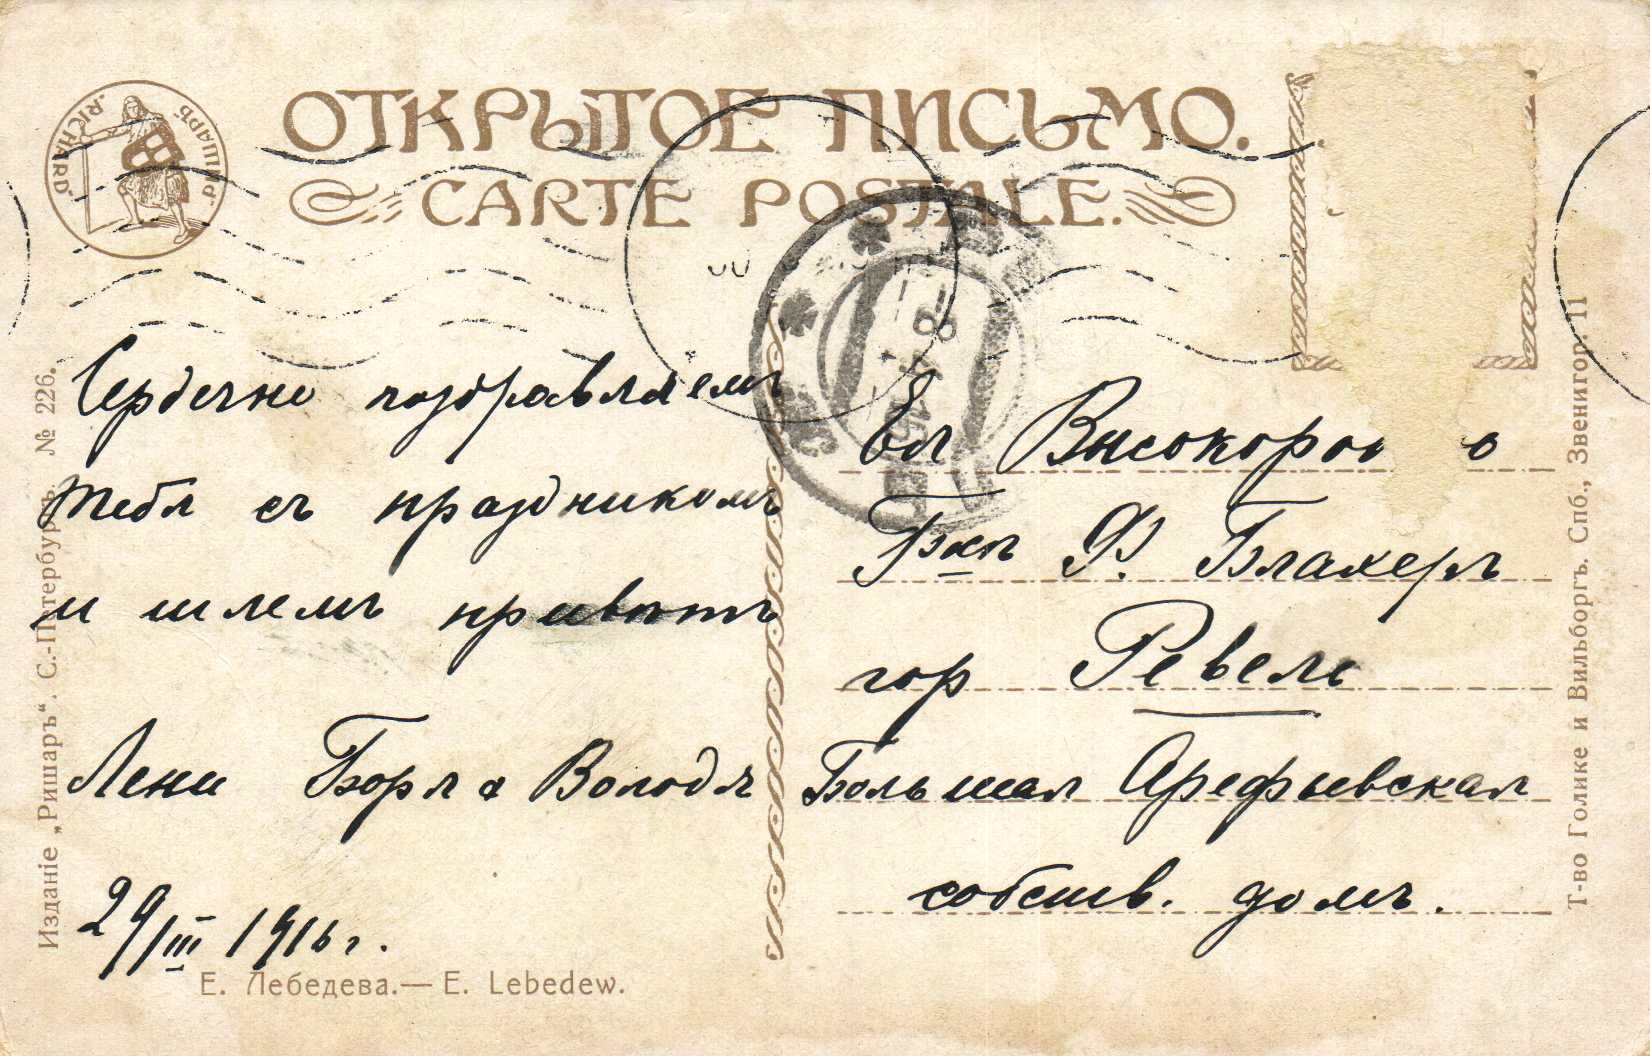 ОТКРЫТОЕ ПИСЬМО.
CARTE POSTALE.
РИШАРЪ „RICHARD“
Сердечно поздравляемъ
тебя съ праздникомъ
и шлемъ привѣтъ
Лени Боря и Володя
29/III 1916 г.
Е. Лебедева.— E. Lebedew.
Издание „Ришаръ“. С.-Петербургъ. № 226.
Ея Высокород
Ф. Блахеръ
гор Ревель
Большая Арефьевская
собств. домъ.
Т-во Голике и Вильборгъ. Спб., Звенигор. 11